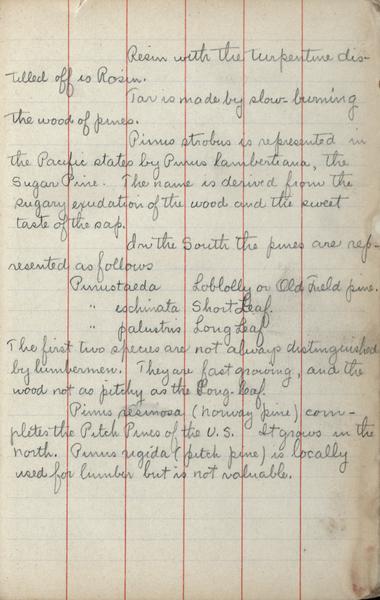 Resin with the turpentine dis-
tilled off is Rosin.
Tar is made by slow-burning
the wood of pines.
Pinus strobus is represented in
the Pacific states by Pinus lambertiana, the
Sugar Pine. The name is derived from the
sugary exudation of the wood and the sweet
taste of the sap.
In the South the pines are rep-
resented as follows
Pinus taeda Loblolly or Old Field pine.
" echinata Short Leaf.
" palustris Long Leaf
The first two species are not always distinguished
by lumbermen. They are fast growing, and the
wood not as pitchy as the Long-leaf.
Pinus resinosa (norway pine) com-
pletes the Pitch Pines of the U.S. It grows in the
north. Pinus rigida (pitch pine) is locally
used for lumber but is not valuable.